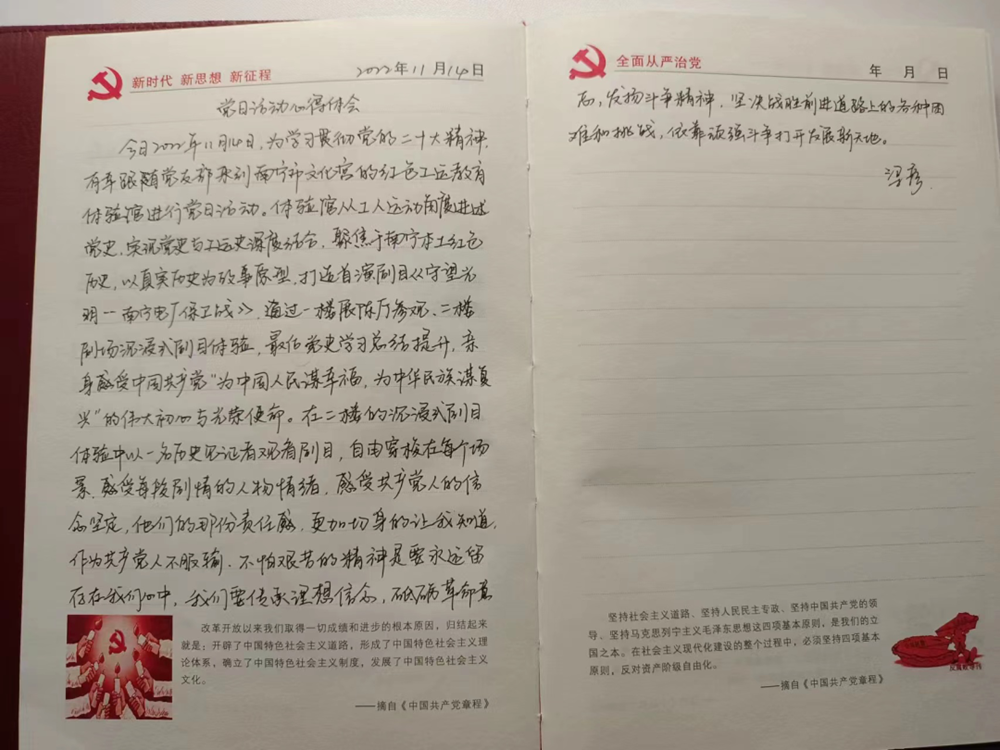 新时代 新思想 新征程
2022年11月14日
党日活动心得体会
今日2022年11月14日,为学习贯彻党的二十大精神,
有幸跟随党支部来到南宁市文化宫的红色工运教育
体验馆进行党日活动。体验馆从工人运动角度讲述
党史,实现党史与工运史深度结合,聚焦于南宁本土红色
历史,以真实历史为故事原型,打造首演剧目《守望光
明一南宁电厂保卫战》,通过一楼展陈厅参观、二楼
剧场沉浸式剧目体验,最后党史学习总结提升,亲
身感受中国共产党“为中国人民谋幸福,为中华民族谋复
兴”的伟大初心与光荣使命。在二楼的沉浸式剧目
体验中以一名历史见证者观看剧目,自由穿梭在每个场
景,感受每段剧情的人物情绪,感受共产党人的信
念坚定,他们的那份责任感,更加切身的让我知道,
作为共产党人不服输、不怕艰苦的精神是要永远留
存在我们心中,我们要传承理想信念,砥砺革命意
改革开放以来我们取得一切成绩和进步的根本原因,归结起来
就是:开辟了中国特色社会主义道路,形成了中国特色社会主义理
论体系,确立了中国特色社会主义制度,发展了中国特色社会主义
文化。
——摘自《中国共产党章程》
全面从严治党
年 月 日
志,发扬斗争精神,坚决战胜前进道路上的各种困
难和挑战,依靠顽强斗争打开发展新天地。
坚持社会主义道路、坚持人民民主专政、坚持中国共产党的领
导、坚持马克思列宁主义毛泽东思想这四项基本原则,是我们的立
国之本。在社会主义现代化建设的整个过程中,必须坚持四项基本
原则,反对资产阶级自由化。
——摘自《中国共产党章程》